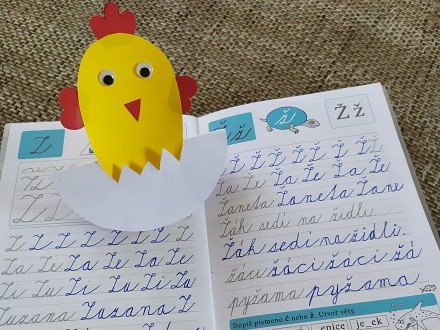 Z
Z Z Z Z Z Z Z
Za Ze Za Ze Za Ze
Zi Zu Zi Zu Zi
Zuzana Zuzana Z
Ž ž ž Ž ž
Ž Ž Ž Ž Ž Ž Ž
Ža Že Ža Že Ža Že
Žaneta Žaneta Žane
Žák sedí na židli.
Žák sedí na židli.
žáci žáci žáci žá
pyžama pyžama
Doplň písmeno č nebo ž. Utvoř věty.
je_ek